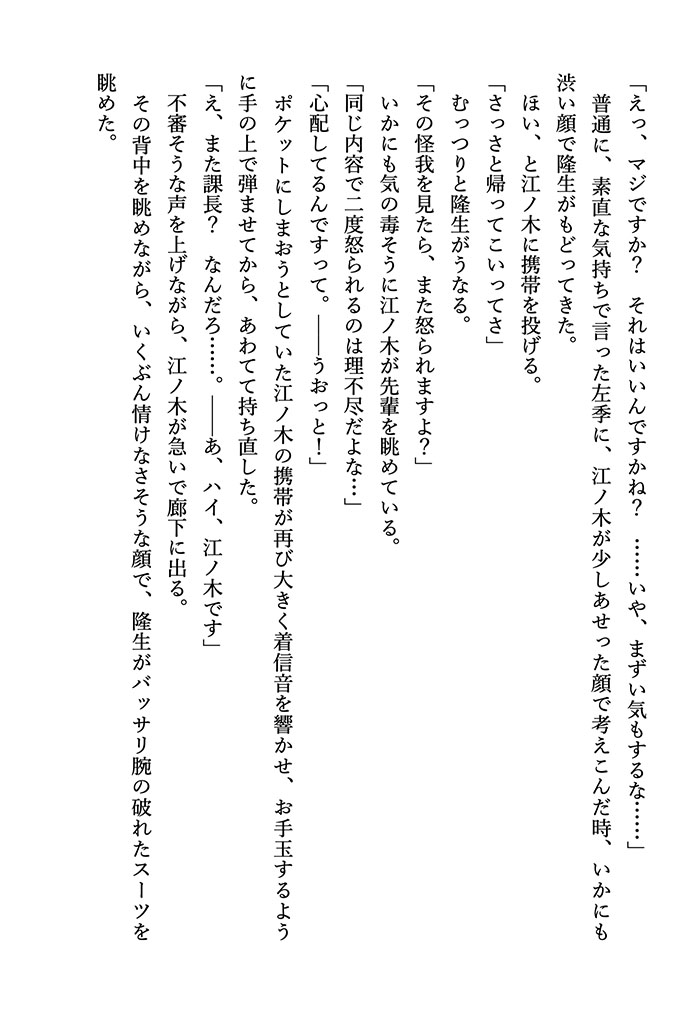 「えっ、マジですか？　それはいいんですかね？　……いや、まずい気もするな……」
　普通に、素直な気持ちで言った左季に、江ノ木が少しあせった顔で考えこんだ時、いかにも
渋い顔で隆生がもどってきた。
　ほい、と江ノ木に携帯を投げる。
「さっさと帰ってこいってさ」
　むっつりと隆生がうなる。
「その怪我を見たら、また怒られますよ？」
　いかにも気の毒そうに江ノ木が先輩を眺めている。
「同じ内容で二度怒られるのは理不尽だよな…」
「心配してるんですって。――うおっと！」
　ポケットにしまおうとしていた江ノ木の携帯が再び大きく着信音を響かせ、お手玉するよう
に手の上で弾ませてから、あわてて持ち直した。
「え、また課長？　なんだろ……。――あ、ハイ、江ノ木です」
　不審そうな声を上げながら、江ノ木が急いで廊下に出る。
　その背中を眺めながら、いくぶん情けなさそうな顔で、隆生がバッサリ腕の破れたスーツを
眺めた。